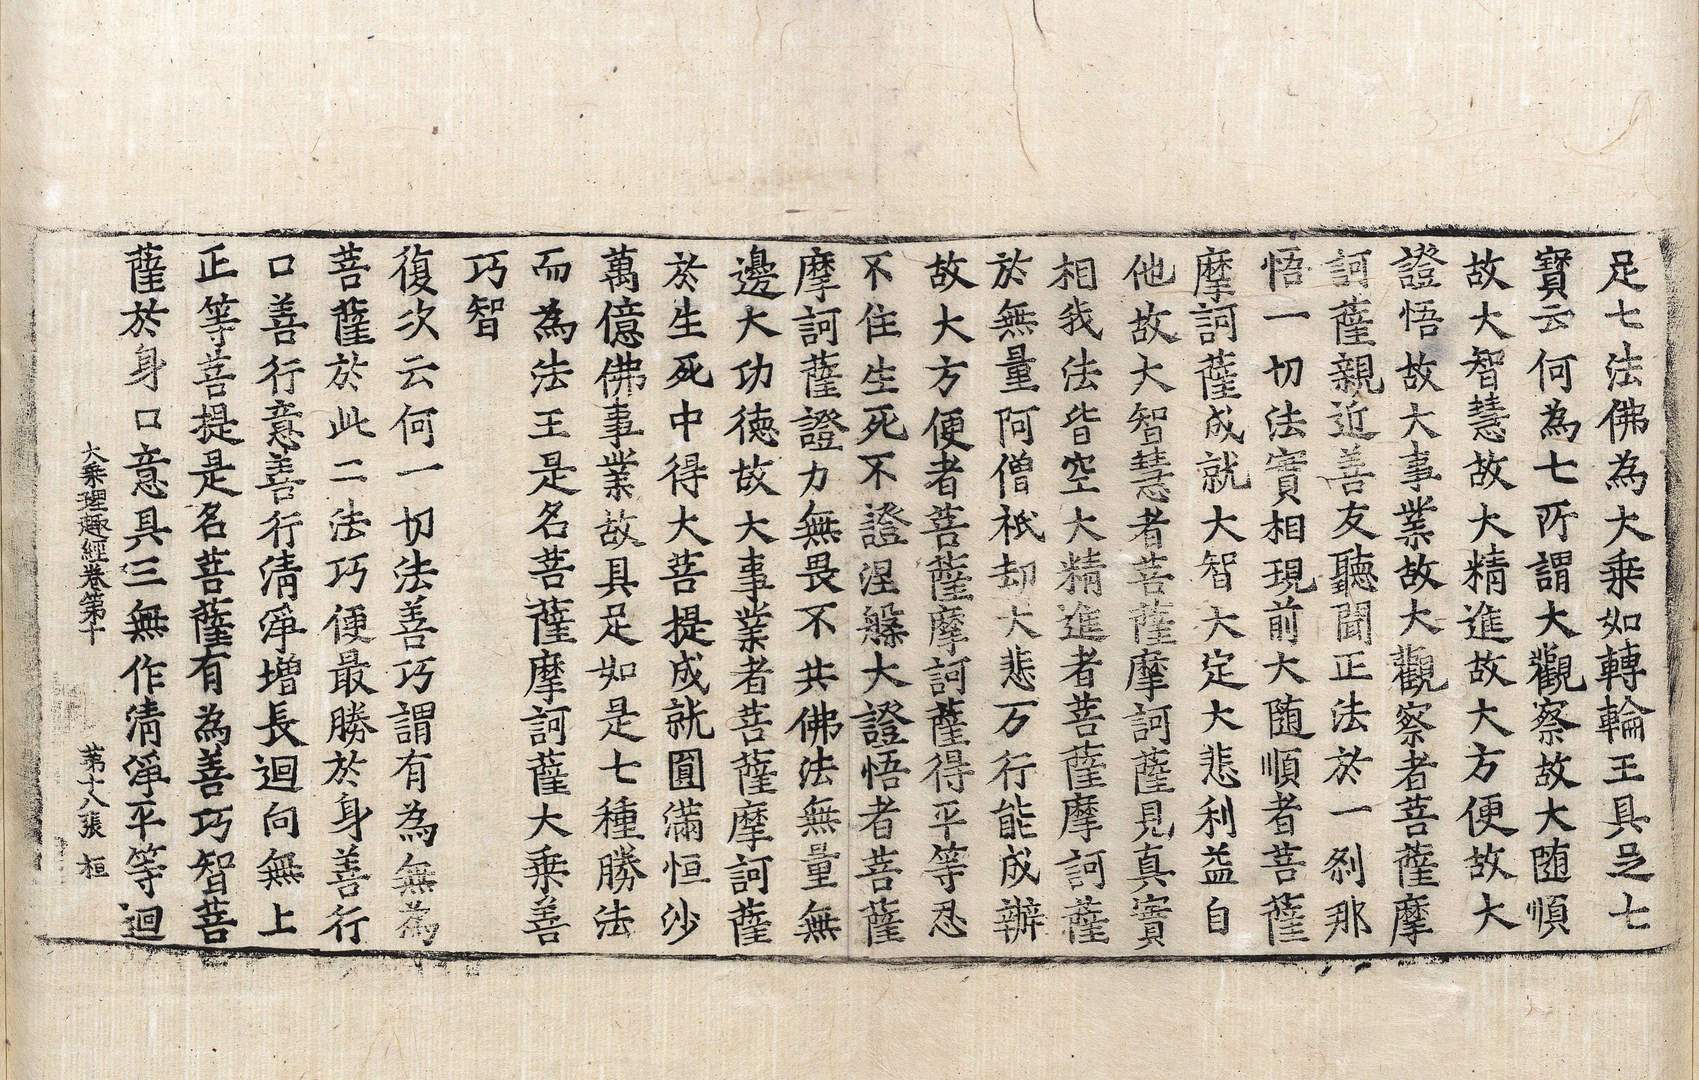 足七法佛為大乗如轉輪王具足七
寶云何為七所謂大觀察故大随順
故大智慧故大精進故大方便故大
證悟故大事業故大觀察者菩薩摩
訶薩親近善友聽聞正法於一刹那
悟一切法實相現前大随順者菩薩
摩訶薩成就大智大定大悲利益自
他故大智慧者菩薩摩訶薩見真實
相我法皆空大精進者菩薩摩訶薩
於無量阿僧衹刧大悲万行能成辦
故大方便者菩薩摩訶薩得平等忍
不住生死不證涅槃大證悟者菩薩
摩訶薩證力無畏不共佛法無量無
邊大功德故大事業者菩薩摩訶薩
於生死中得大菩提成就圓滿恒沙
萬億佛事業故具足如是七種勝法
而為法王是名菩薩摩訶薩大乗善
巧智
復次云何一切法善巧謂有為無為
菩薩於此二法巧便最勝於身善行
口善行意善行清淨增長迴向無上
正等菩提是名菩薩有為善巧智菩
薩於身口意具三無作清淨平等迴
大乗理趣經卷第十 第十八張 桓